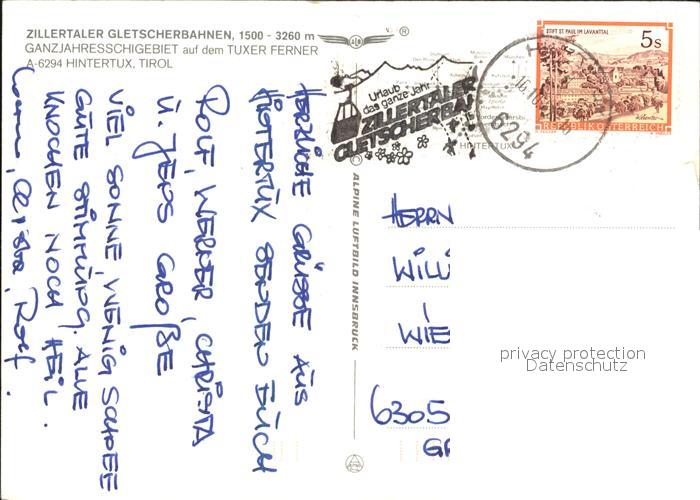 ZILLERTALER GLETSCHERBAHNEN, 1500 - 3260 m
GANZJAHRESSCHIGEBIET auf dem TUXER FERNER
A-6294 HINTERTUX, TIROL
HERZLICHE GRÜSSE AUS
HINTERTUX SENDEN EUCH
ROLF, WERNER, CHRISTA
U. JENS GROßE
VIEL SONNE, WENIG SCHNEE
GUTE STIMMUNG. ALLE
KNOCHEN NOCH HEIL.
Rolf
ALPINE LUFTBILD INNSBRUCK
Urlaub
das ganze Jahr
ZILLERTALER
GLETSCHERBA
HINTERTUX
6294
STIFT ST. PAUL IM LAVANTTAL
5s
REPUBLIK ÖSTERREICH
HERRN
WILL
WIE
6305
privacy protection
Datenschutz